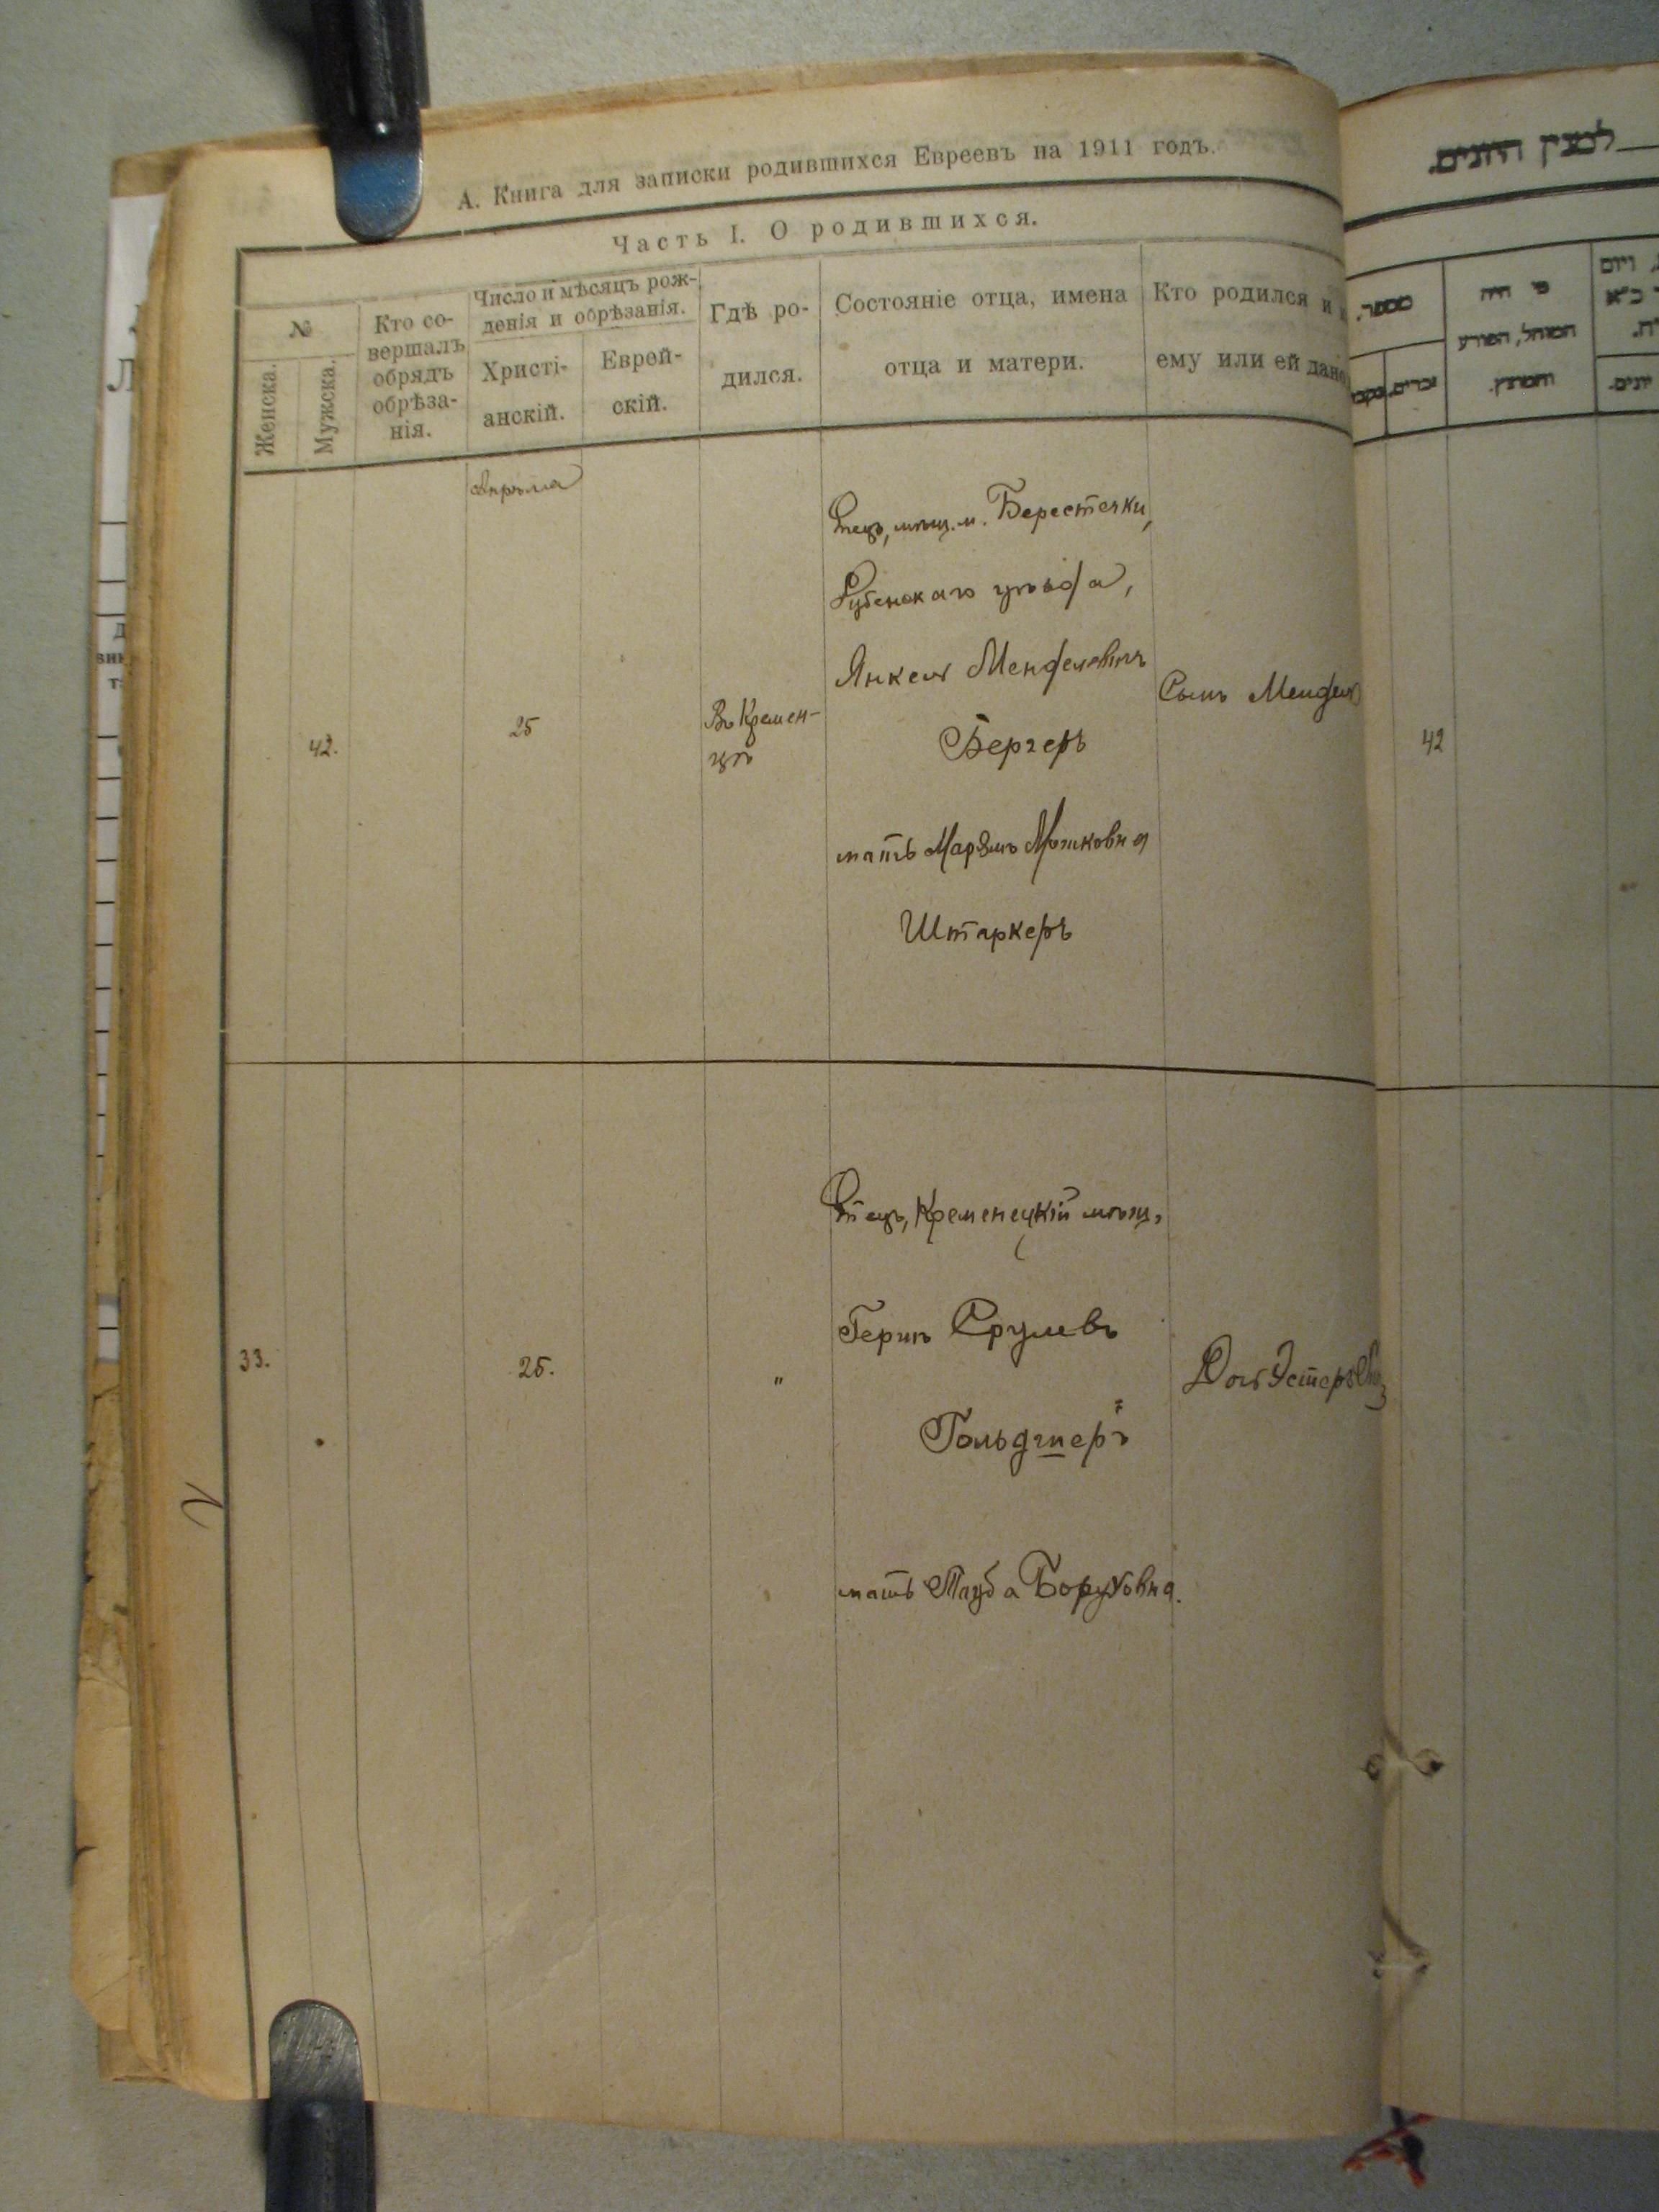 А. Книга для записки родившихся Евреевъ на 1911 годъ.
Часть I. О родившихся.
№
Женска.
Мужска.
Кто со-
вершалъ
обрядъ
обрѣза-
нія.
Число и мѣсяцъ рож-
денія и обрѣзанія.
Христі-
анскій.
Еврей-
скій.
Гдѣ ро-
дился.
Состояніе отца, имена
отца и матери.
Кто родился и
ему или ей дано
Апрѣля
42.
25
Въ Кремен-
цѣ
Отецъ, мѣщ. м. Берестечки,
Дубенскаго уѣзда,
Янкель Менделевичъ
Бергеръ
мать Маріямъ Мошковна
Штаркеръ
Сынъ Мендель
33.
25.
"
Отецъ, Кременецкій мѣщ.
Гершъ Срулевъ
мать Тауба Боруховна.
Дочь Эстеръ
מספר.
זכרים.
מי היה
המוהל, הפורע
והמוצץ.
ויום
יונים.
42